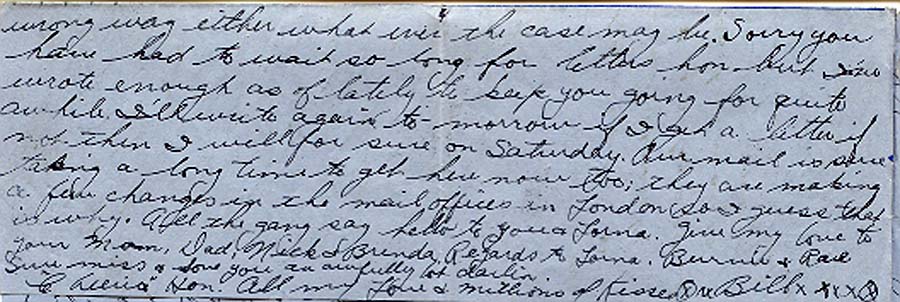 wrong way either what ever the case may be. Sorry you
have had to wait so long for letters hon but I've
wrote enough as of lately to keep you going for quite
awhile. I'll write again to-morrow if I get a letter if
not then I will for sure on Saturday. Our mail is sure
taking a long time to get here now too; they are making
a few changes in the mail offices in London so I guess that
is why. All the gang say hello to you & Lorna. Give my love to
your Mom, Dad, Mick & Brenda, Regards to Lorna. Bernie & Rae
Sure miss & love you an awfully lot darlin.
Cheerio Hon All my Love & millions of Kisses Bill x x x